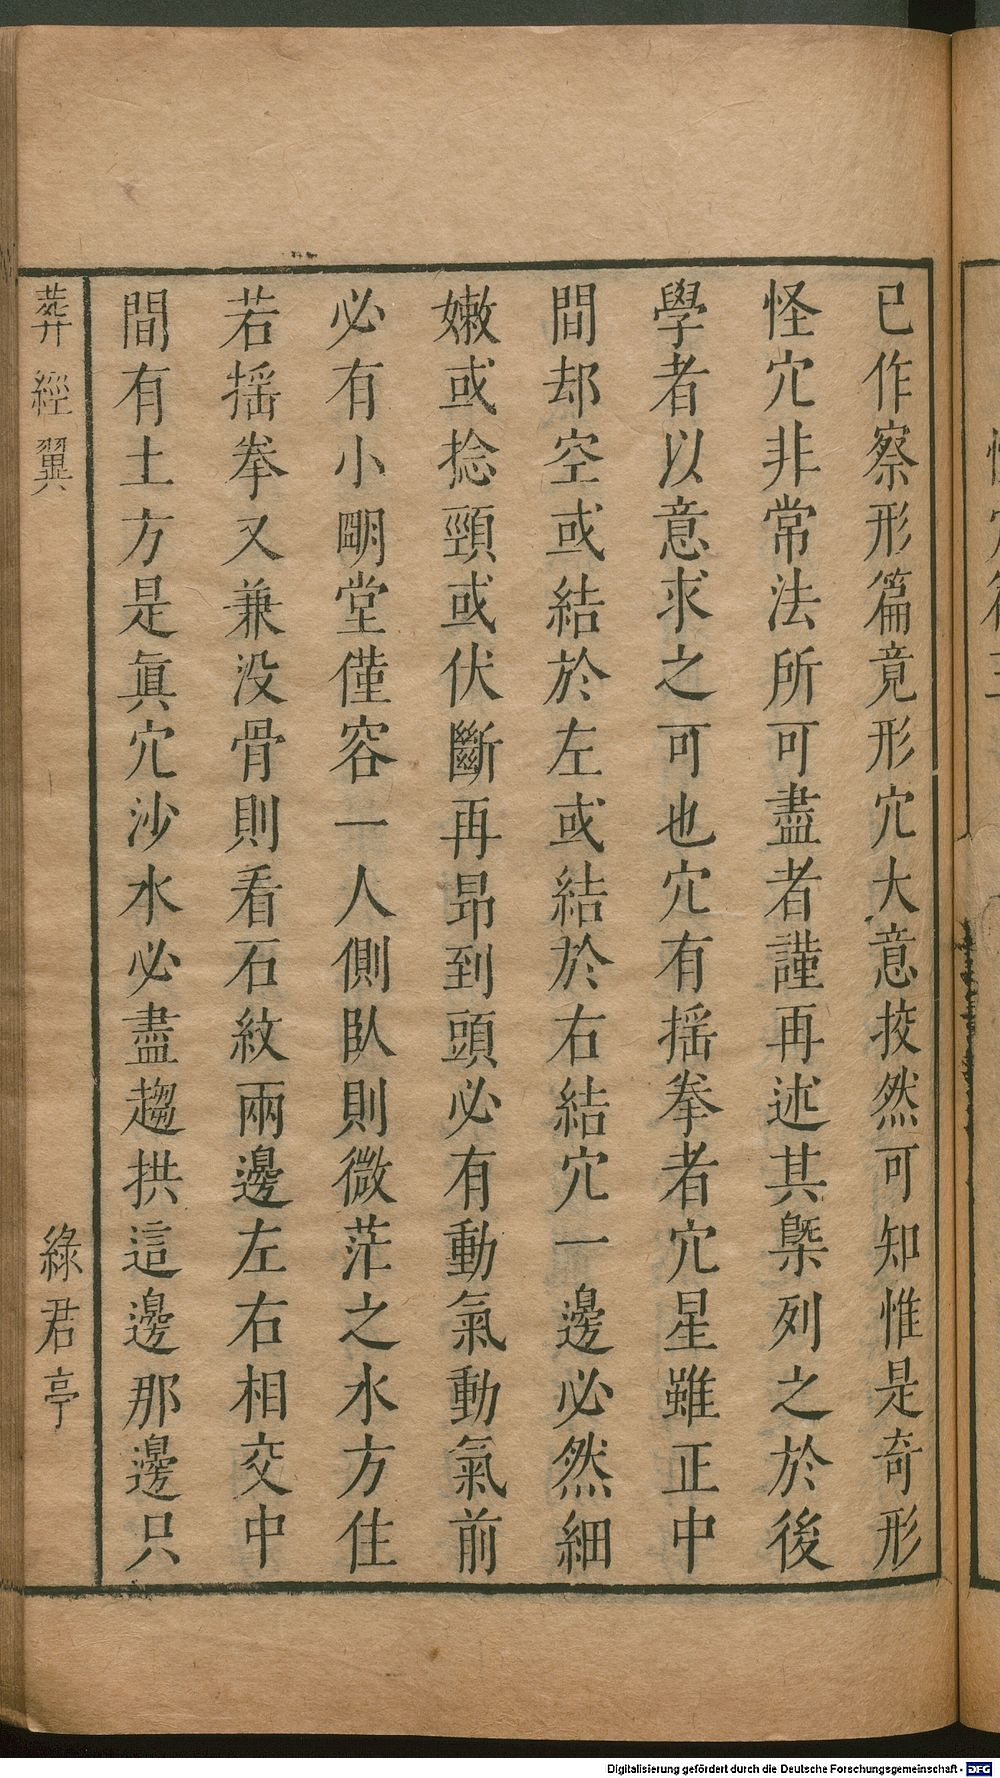 已作察形篇竟形穴大意挍然可知惟是奇形
怪穴非常法所可盡者謹再述其槩列之於後
學者以意求之可也穴有揺拳者穴星雖正中
間却空或結於左或結於右結穴一邊必然細
嫩或捻頸或伏斷再昻到頭必有動氣動氣前
必有小朙堂僅容一人側臥則微茫之水方住
若揺拳又兼没骨則看石紋兩邊左右相交中
間有土方是眞穴沙水必盡趨拱這邊那邊只
葬經翼
綠君亭
Digitalisierung gefördert durch die Deutsche Forschungsgemeinschaft - DFG